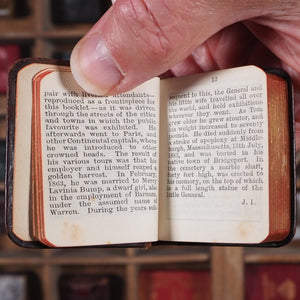 pair with liveried attendants—
reproduced as a frontispiece for
this booklet — as it was driven
through the streets of the cities
and towns in which the public
favourite was exhibited. He
afterwards went to Paris, and
other Continental capitals, where
he was introduced to other
crowned heads. The result of
his various tours was that his
employer and himself reaped a
golden harvest. In February,
1863, he was married to Mercy
Lavinia Bump, a dwarf girl, also
in the employment of Barnum,
under the assumed name of
Warren. During the years sub-
12
sequent to this, the General and
his little wife travelled all over
the world, and held exhibitions
wherever they went. As Tom
grew older, he grew stouter, and
his weight increased to seventy
pounds. He died suddenly from
a stroke of apoplexy at Middle-
burgh, Massachusetts, 15th July,
1883, and was buried in his
native town of Bridgeport. In
the cemetery a marble shaft,
forty feet high, was erected to
his memory, on the top of which
is a full length statue of the
little General.
J. i.